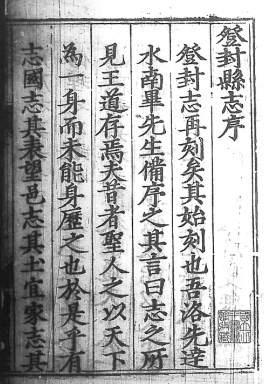 登封縣志序
登封志再刻矣其始刻也吾洛先達
水南畢先生備序之其言曰志之所
見王道存焉夫昔者聖人之以天下
為一身而未能身歷之也於是乎有
志國志其表望邑志其土宜家志其